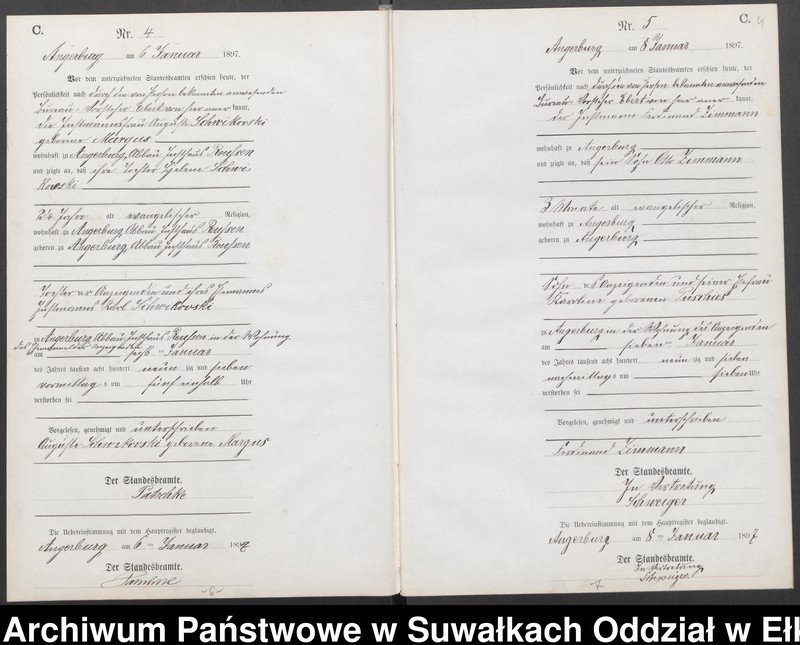 C.
Nr. 4
Angerburg am 6 Januar 1897.
Vor dem unterzeichneten Standesbeamten erschien heute, der
Persönlichkeit nach durch den von Person bekannten anwesenden
Bureau Vorsteher Ebert von hier anerkannt,
die Instmannsfrau Auguste Schwikovski
geborene Margus
wohnhaft zu Angerburg, Abbau Insthaus Reussen
und zeigte an, daß ihre Tochter Helene Schwi
kowski
2 1/4 Jahre alt evangelischer Religion,
wohnhaft zu Angerburg Abbau Insthaus Reussen
geboren zu Angerburg, Abbau Insthaus Reussen
Tochter der Anzeigenden und ihres Ehemannes
Instmannes Karl Schwikovski
zu Angerburg Abbau Insthaus Reussen in der Wohnung
des Ehemannes der Anzeigenden
am sechs ten Januar
des Jahres tausend acht hundert neun zig und sieben
vormittags um fünf einhalb Uhr
verstorben sei
Vorgelesen, genehmigt und unterschrieben
Auguste Schwikovski geborene Margus
Der Standesbeamte.
Die Uebereinstimmung mit dem Hauptregister beglaubigt.
Angerburg am 6 ten Januar 1897
Der Standesbeamte.
-6-
C. 4
Nr. 5
Angerburg am 8 Januar 1897.
Vor dem unterzeichneten Standesbeamten erschien heute, der
Persönlichkeit nach durch den von Person bekannten anwesenden
Bureau Vorsteher Ebert von hier anerkannt,
der Instmann Ferdinand Zimmann
wohnhaft zu Angerburg
und zeigte an, daß sein Sohn Otto Zimmann
3 Monate alt evangelischer Religion,
wohnhaft zu Angerburg
geboren zu Angerburg
Sohn des Anzeigenden und seiner Ehefrau
Karoline geborenen
zu Angerburg in der Wohnung des Anzeigenden
am sieben ten Januar
des Jahres tausend acht hundert neun zig und sieben
nachmittags um sieben Uhr
verstorben sei
Vorgelesen, genehmigt und unterschrieben
Ferdinand Zimmann
Der Standesbeamte.
In Vertretung
Schweiger
Die Uebereinstimmung mit dem Hauptregister beglaubigt.
Angerburg am 8 ten Januar 1897
Der Standesbeamte.
In Vertretung
Schweiger.
-7-
Archiwum Państwowe w Suwałkach Oddział w Ełk